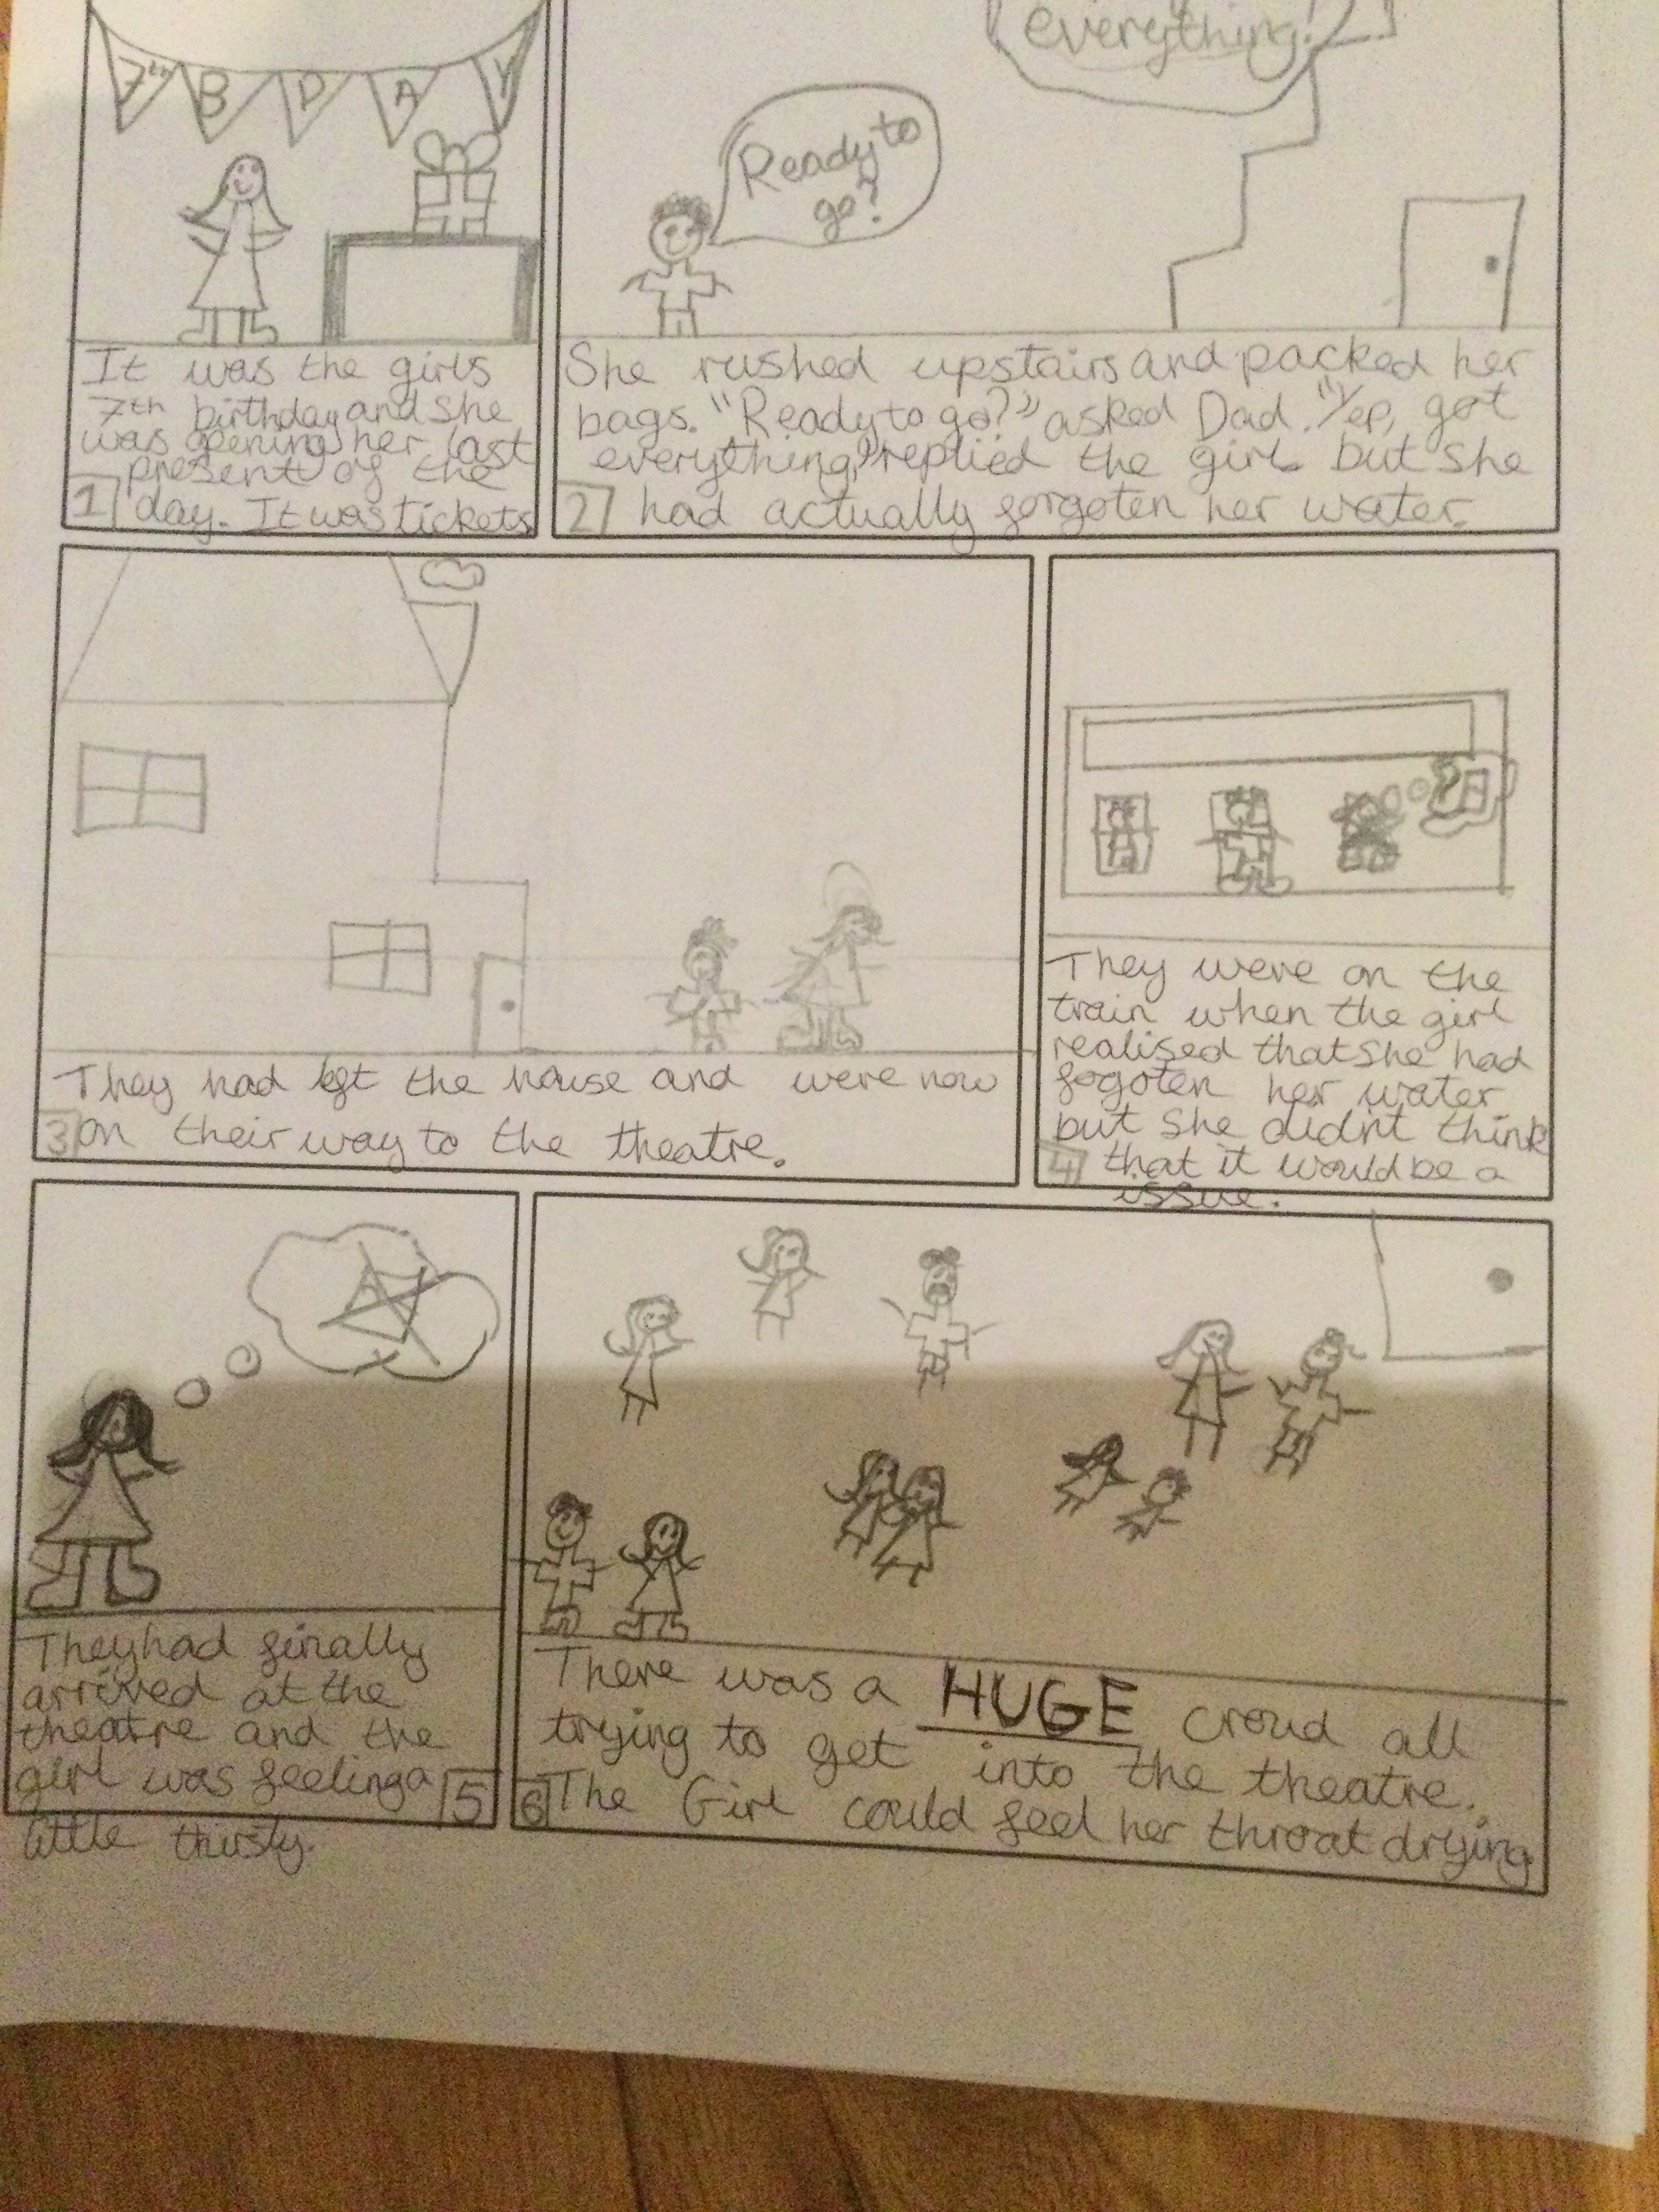 7th B D A Y
It was the girls
7th birthday and she
was opening her last
present of the
1 day. It was tickets
everything!
Ready to
go?
She rushed upstairs and packed her
bags. "Ready to go?" asked Dad. "Yep, got
everything," replied the girl but she
2 had actually forgoten her water.
They had left the house and were now
3 on their way to the theatre.
They were on the
train when the girl
realised that she had
fogoten her water
but she didn't think
4 that it would be a
issue.
They had finally
arrived at the
theatre and the
girl was feeling a 5
little thirsty.
There was a HUGE croud all
trying to get into the theatre.
6 The Girl could feel her throat drying